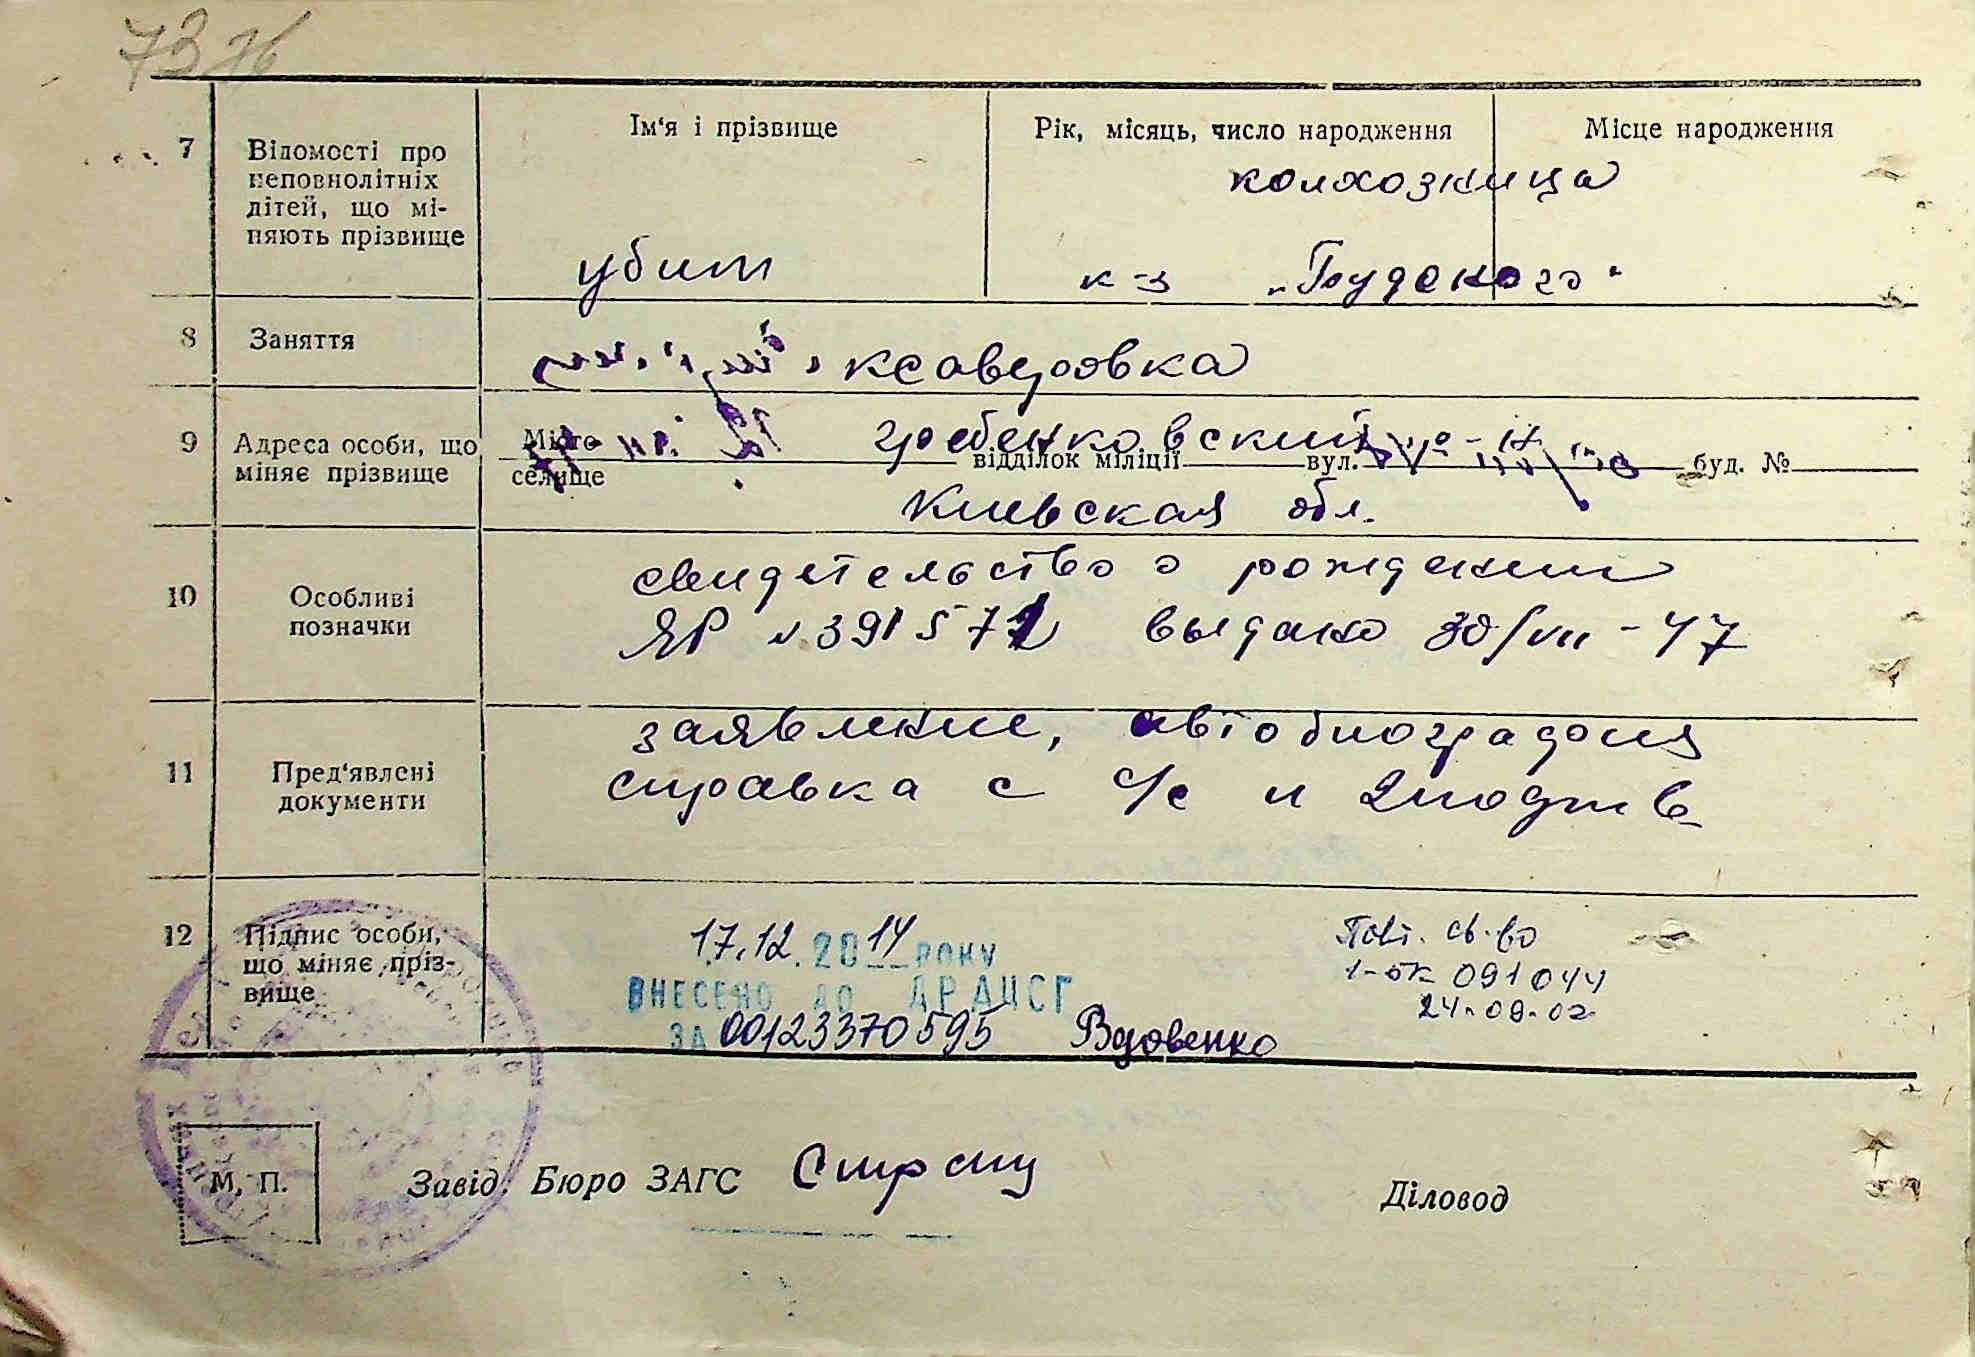 7376
Ім'я і прізвище
Рік, місяць, число народження
Місце народження
7
Відомості про
неповнолітніх
дітей, що мі-
няють прізвище
колхозница
убит
к-з
8
Заняття
ксаверовка
9
Адреса особи, що
міняє прізвище
Місто
селище
гребенковский
відділок міліції
вул.
буд. №
Киевская обл.
10
Особливі
позначки
свидетельство о рождении
ЯР N 391571 выдано 30/VII-47
11
Пред'явлені
документи
заявление, автобиография
справка с с/с и
12
Підпис особи,
що міняє пріз-
вище
17.12.2014 РОКУ
ВНЕСЕНО ДО ДРАЦСГ
ЗА 00123370595 Вдовенко
Повт. св-во
1-ок 091044
24.09.02
М. П.
Завід. Бюро ЗАГС
Діловод